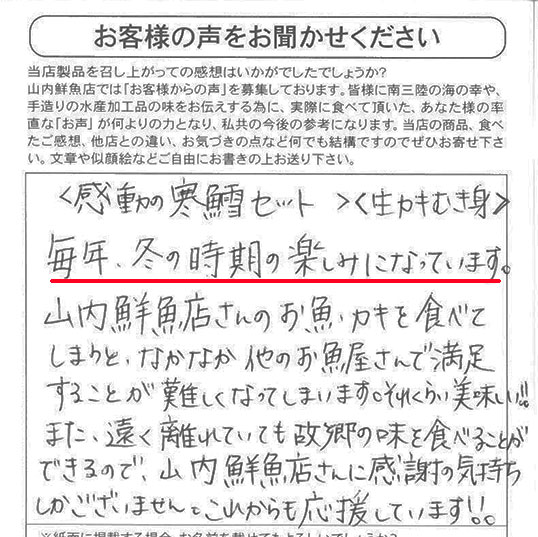 お客様の声をお聞かせください
当店製品を召し上がっての感想はいかがでしたでしょうか?
山内鮮魚店では「お客様からの声」を募集しております。皆様に南三陸の海の幸や、
手造りの水産加工品の味をお伝えする為に、実際に食べて頂いた、あなた様の率
直な「お声」が何よりの力となり、私共の今後の参考になります。当店の商品、食べ
たご感想、他店との違い、お気づきの点など何でも結構ですのでぜひお寄せ下さ
い。文章や似顔絵などご自由にお書きの上お送り下さい。
<感動の寒鱈セット ><生カキむき身>
毎年、冬の時期の楽しみになっています。
山内鮮魚店さんのお魚、カキを食べて
しまうと、なかなか他のお魚屋さんで満足
することが難しくなってしまいます。それくらい美味しい!!
また、遠く離れていても故郷の味を食べることが
できるので、山内鮮魚店さんに感謝の気持ち
しかございません。これからも応援しています!!。
※紙面に掲載する場合、お名前を載せてもよろしいでしょうか?